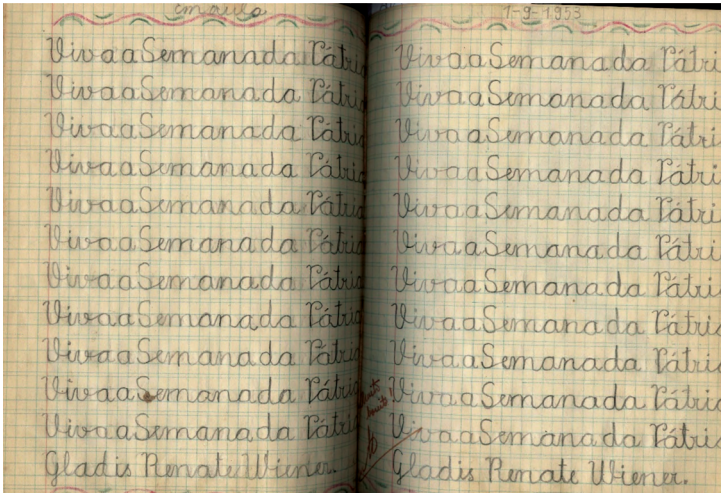 em aula
Viva a Semana da Pátria
Viva a Semana da Pátria
Viva a Semana da Pátria
Viva a Semana da Pátria
Viva a Semana da Pátria
Viva a Semana da Pátria
Viva a Semana da Pátria
Viva a Semana da Pátria
Viva a Semana da Pátria
Viva a Semana da Pátria
Viva a Semana da Pátria
Gladis Renate Wiener.
1-9-1953
Viva a Semana da Pátri
Viva a Semana da Pátri
Viva a Semana da Pátri
Viva a Semana da Pátri
Viva a Semana da Pátri
Viva a Semana da Pátri
Viva a Semana da Pátri
Viva a Semana da Pátri
Viva a Semana da Pátri
Viva a Semana da Pátria
Viva a Semana da Pátria
Gladis Renate Wiener.